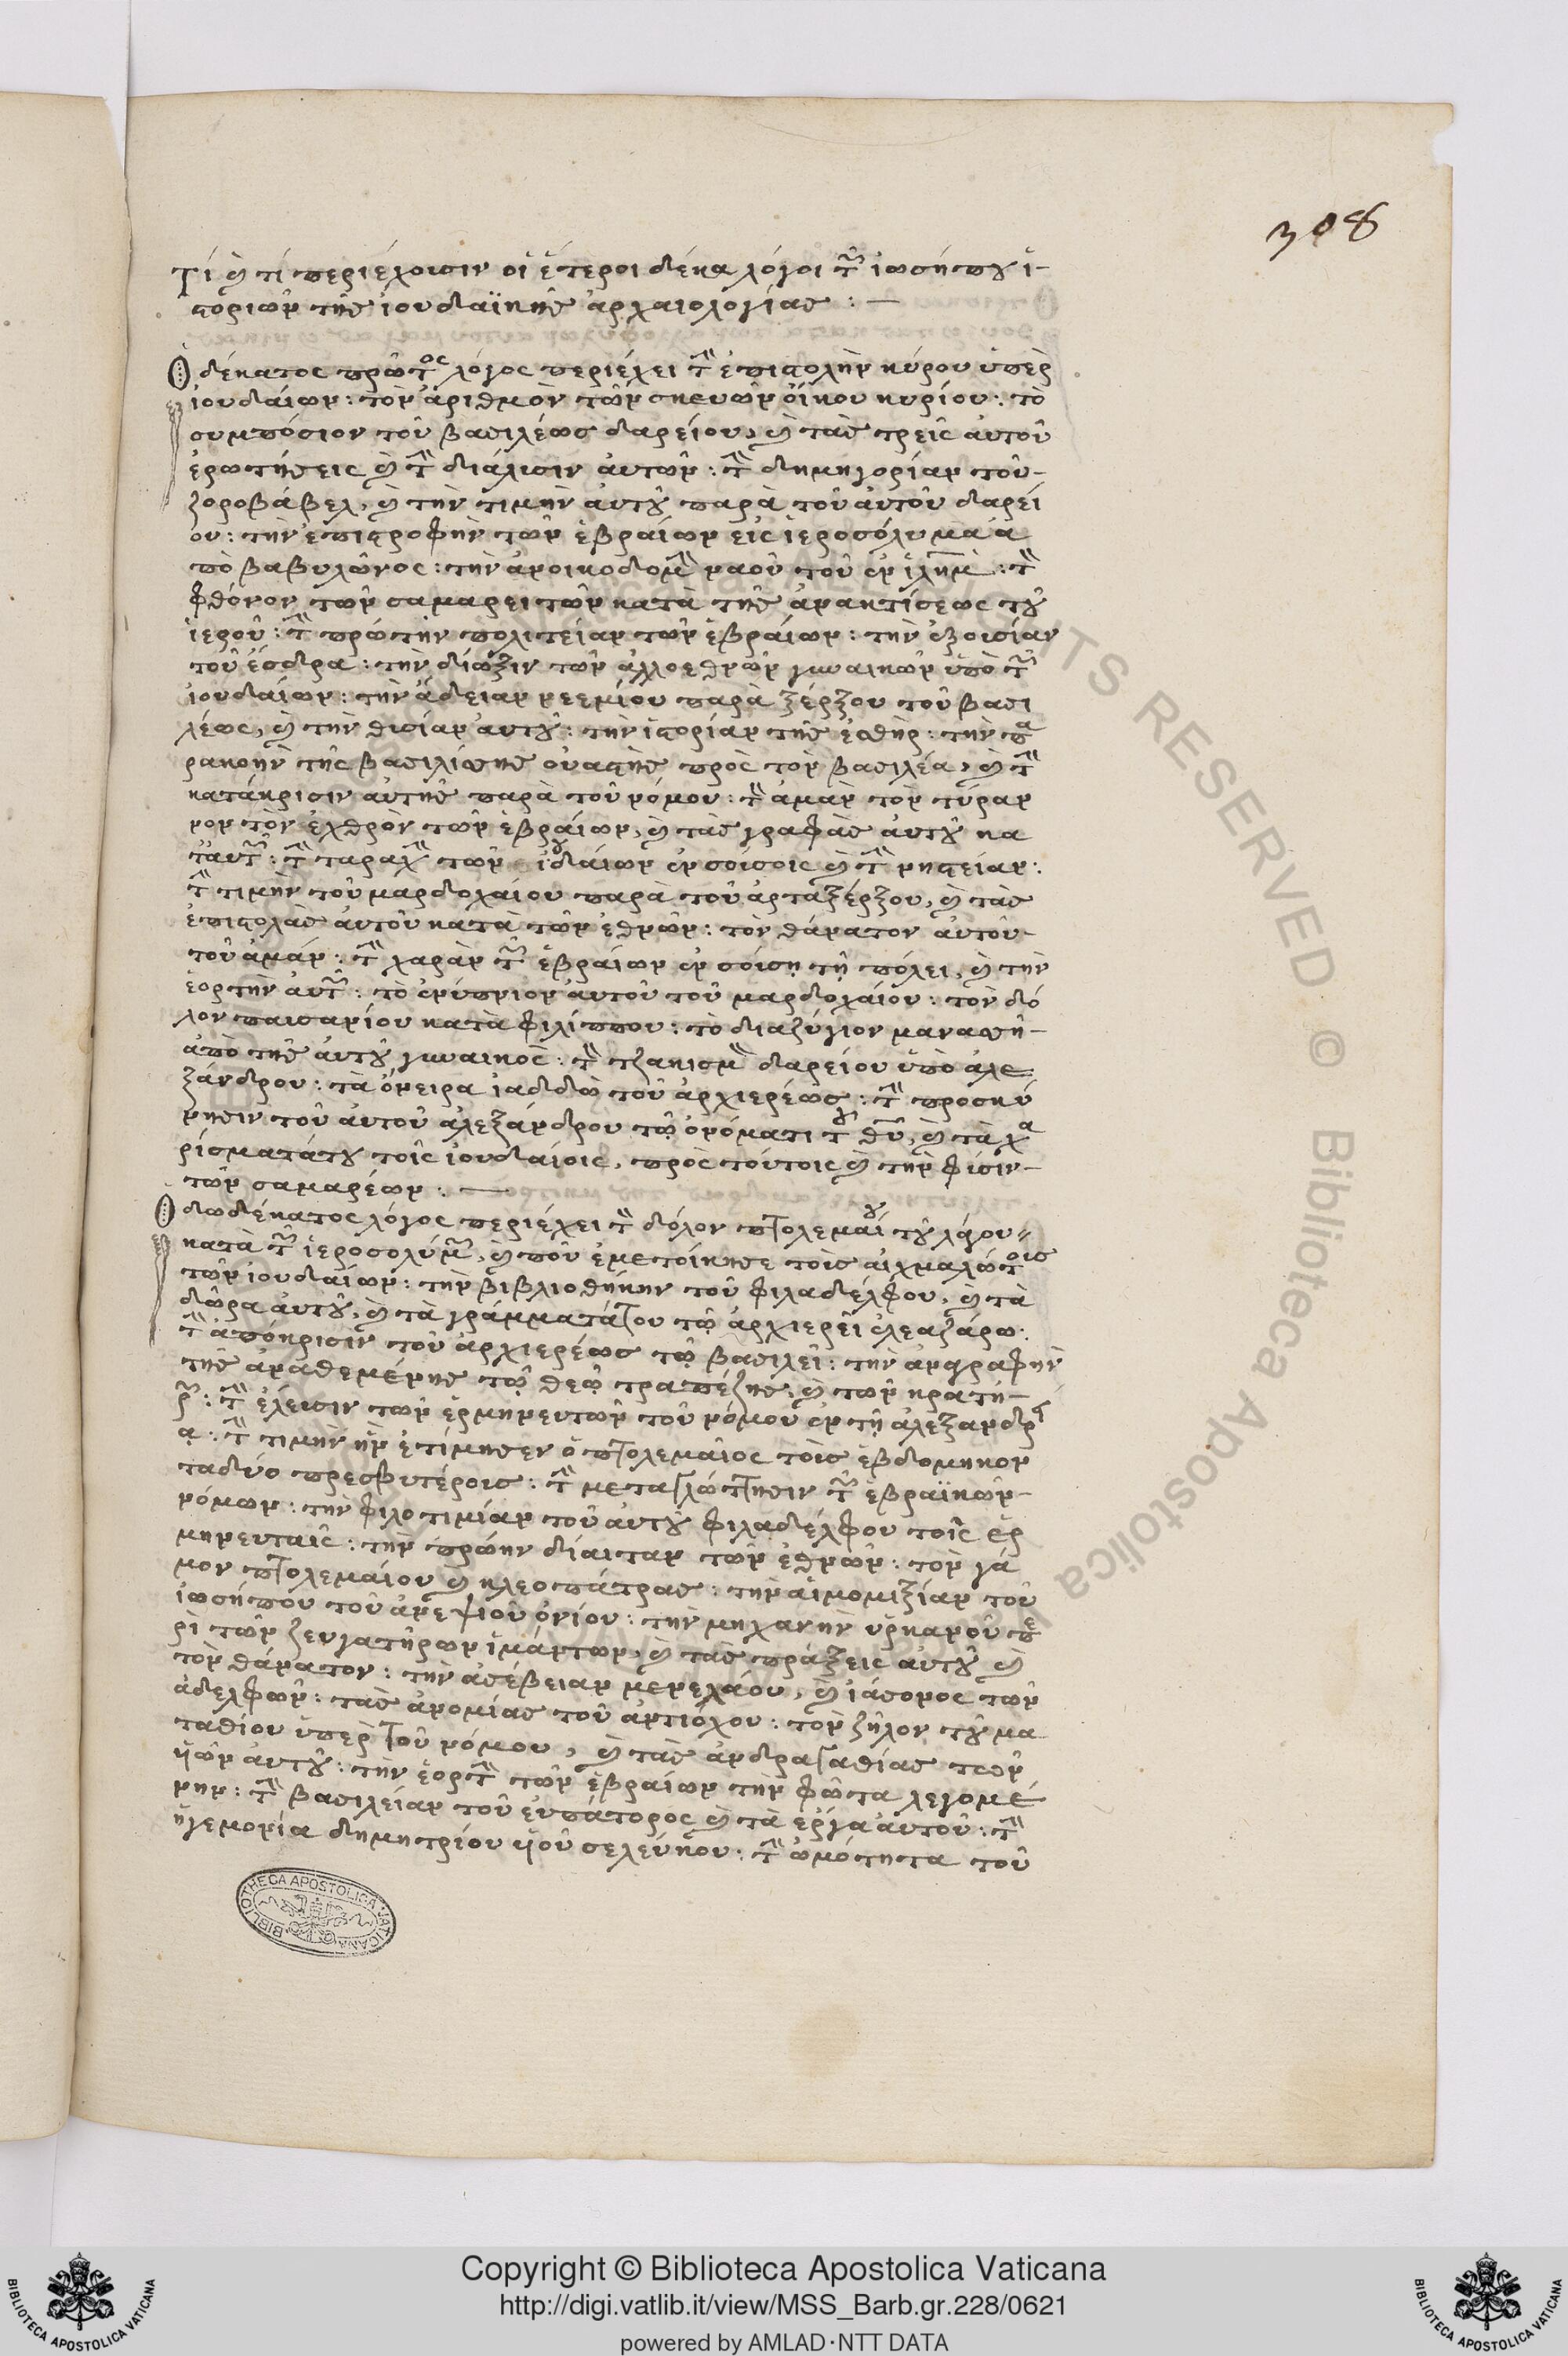 308
Τί καὶ τί περιέχουσιν οἱ ἕτεροι δέκα λόγοι τῶν ἰωσήπου ἱ-
στοριῶν τῆς ἰουδαϊκῆς ἀρχαιολογίας : —
Ὁ δέκατος πρῶτος λόγος περιέχει τὴν ἐπιστολὴν κύρου ὑπὲρ
ἰουδαίων : τὸν ἀριθμὸν τῶν σκευῶν οἴκου κυρίου : τὸ
συμπόσιον τοῦ βασιλέως δαρείου, καὶ τὰς τρεῖς αὐτοῦ
ἐρωτήσεις καὶ τὴν διάλισιν αὐτῶν : τὴν δημηγορίαν τοῦ-
ζοροβάβελ, καὶ τὴν τιμὴν αὐτοῦ παρὰ τοῦ αὐτοῦ δαρεί
ου : τὴν ἐπιστροφὴν τῶν ἑβραίων εἰς ἱεροσόλυμα ἀ
πὸ βαβυλῶνος : τὴν ἀνοικοδομὴν ναοῦ τοῦ ἐν ἱλημ : τὸν
φθόνον τῶν σαμαρειτῶν κατὰ τῆς ἀνακτίσεως τοῦ
ἱεροῦ : τὴν πρώτην πολιτείαν τῶν ἑβραίων : τὴν ἐξουσίαν
τοῦ ἔσδρα : τὴν δίωξιν τῶν ἀλλοεθνῶν γυναικῶν ὑπὸ τῶν
ἰουδαίων : τὴν ἄδειαν νεεμίου παρὰ ξέρξου τοῦ βασι
λέως, καὶ τὴν θυσίαν αὐτοῦ : τὴν ἱστορίαν τῆς ἐσθὴρ : τὴν πα
ρακοὴν τῆς βασιλίσσης οὐαστὴς πρὸς τὸν βασιλέα, καὶ τὴν
κατάκρισιν αὐτῆς παρὰ τοῦ νόμου : τὸν ἀμὰν τὸν τύραν
νον τὸν ἐχθρὸν τῶν ἑβραίων, καὶ τὰς γραφὰς αὐτοῦ κα
τ' αὐτῶν : τὴν ταραχὴν τῶν ἰουδαίων ἐν σούσοις καὶ τὴν νηστείαν :
τὴν τιμὴν τοῦ μαρδοχαίου παρὰ τοῦ ἀρταξέρξου, καὶ τὰς
ἐπιστολὰς αὐτοῦ κατὰ τῶν ἐθνῶν : τὸν θάνατον αὐτοῦ-
τοῦ ἀμάν : τὴν χαρὰν τῶν ἑβραίων ἐν σούσῃ τῇ πόλει, καὶ τὴν
ἑορτὴν αὐτῶν : τὸ ἐνύπνιον αὐτοῦ τοῦ μαρδοχαίου : τὸν δό
λον παυσανίου κατὰ φιλίππου : τὸ διαζύγιον μανασσῆ-
ἀπὸ τῆς αὐτοῦ γυναικὸς : τὸν τζακισμὸν δαρείου ὑπὸ ἀλε
ξάνδρου : τὰ ὄνειρα ἰαδδὼ τοῦ ἀρχιερέως : τὴν προσκύ
νησιν τοῦ αὐτοῦ ἀλεξάνδρου τῷ ὀνόματι τοῦ θυ, καὶ τὰ χα
ρίσματά του τοῖς ἰουδαίοις, πρὸς τούτοις καὶ τὴν φύσιν-
τῶν σαμαρέων : —
Ὁ δωδέκατος λόγος περιέχει τὸν δόλον πτολεμαίου τοῦ λάγου-
κατὰ τῶν ἱεροσολύμων, καὶ ποῦ ἐμετοίκησε τοὺς αἰχμαλώτους
τῶν ἰουδαίων : τὴν βιβλιοθήκην τοῦ φιλαδέλφου, καὶ τὰ
δῶρα αὐτοῦ, καὶ τὰ γράμματά του τῷ ἀρχιερεῖ ἐλεαζάρῳ :
τὴν ἀπόκρισιν τοῦ ἀρχιερέως τῷ βασιλεῖ : τὴν ἀναγραφὴν
τῆς ἀναθεμένης τῷ θεῷ τραπέζης, καὶ τῶν κρατή-
ρων : τὴν ἔλευσιν τῶν ἑρμηνευτῶν τοῦ νόμου ἐν τῇ ἀλεξανδρεί
ᾳ : τὴν τιμὴν ἣν ἐτίμησεν ὁ πτολεμαῖος τοὺς ἑβδομηκον
ταδύο πρεσβυτέρους : τὴν μεταγλώττησιν τῶν ἑβραϊκῶν-
νόμων : τὴν φιλοτιμίαν τοῦ αὐτοῦ φιλαδέλφου τοῖς ἑρ
μηνευταῖς : τὴν πρώην δίαιταν τῶν ἐθνῶν : τὸν γά
μον πτολεμαίου καὶ κλεοπάτρας : τὴν αἱμομιξίαν τοῦ
ἰωσήπου τοῦ ἀνεψιοῦ ὀνίου : τὴν μηχανὴν ὑρκανοῦ πε
ρὶ τῶν ζευγατήρων ἱμάντων, καὶ τὰς πράξεις αὐτοῦ καὶ
τὸν θάνατον : τὴν ἀσέβειαν μενελάου, καὶ ἰάσονος τῶν
ἀδελφῶν : τὰς ἀνομίας τοῦ ἀντιόχου : τὸν ζῆλον τοῦ μα
ταθίου ὑπὲρ τοῦ νόμου, καὶ τὰς ἀνδραγαθίας τῶν
υἱῶν αὐτοῦ : τὴν ἑορτὴν τῶν ἑβραίων τὴν φῶτα λεγομέ
νην : τὴν βασιλείαν τοῦ εὐπάτορος καὶ τὰ ἔργα αὐτοῦ : τὴν
ἡγεμονία δημητρίου υἱοῦ σελεύκου : τὴν ὠμότητα τοῦ
BIBLIOTHECA APOSTOLICA VATICANA
Copyright © Biblioteca Apostolica Vaticana
http://digi.vatlib.it/view/MSS_Barb.gr.228/0621
powered by AMLAD·NTT DATA